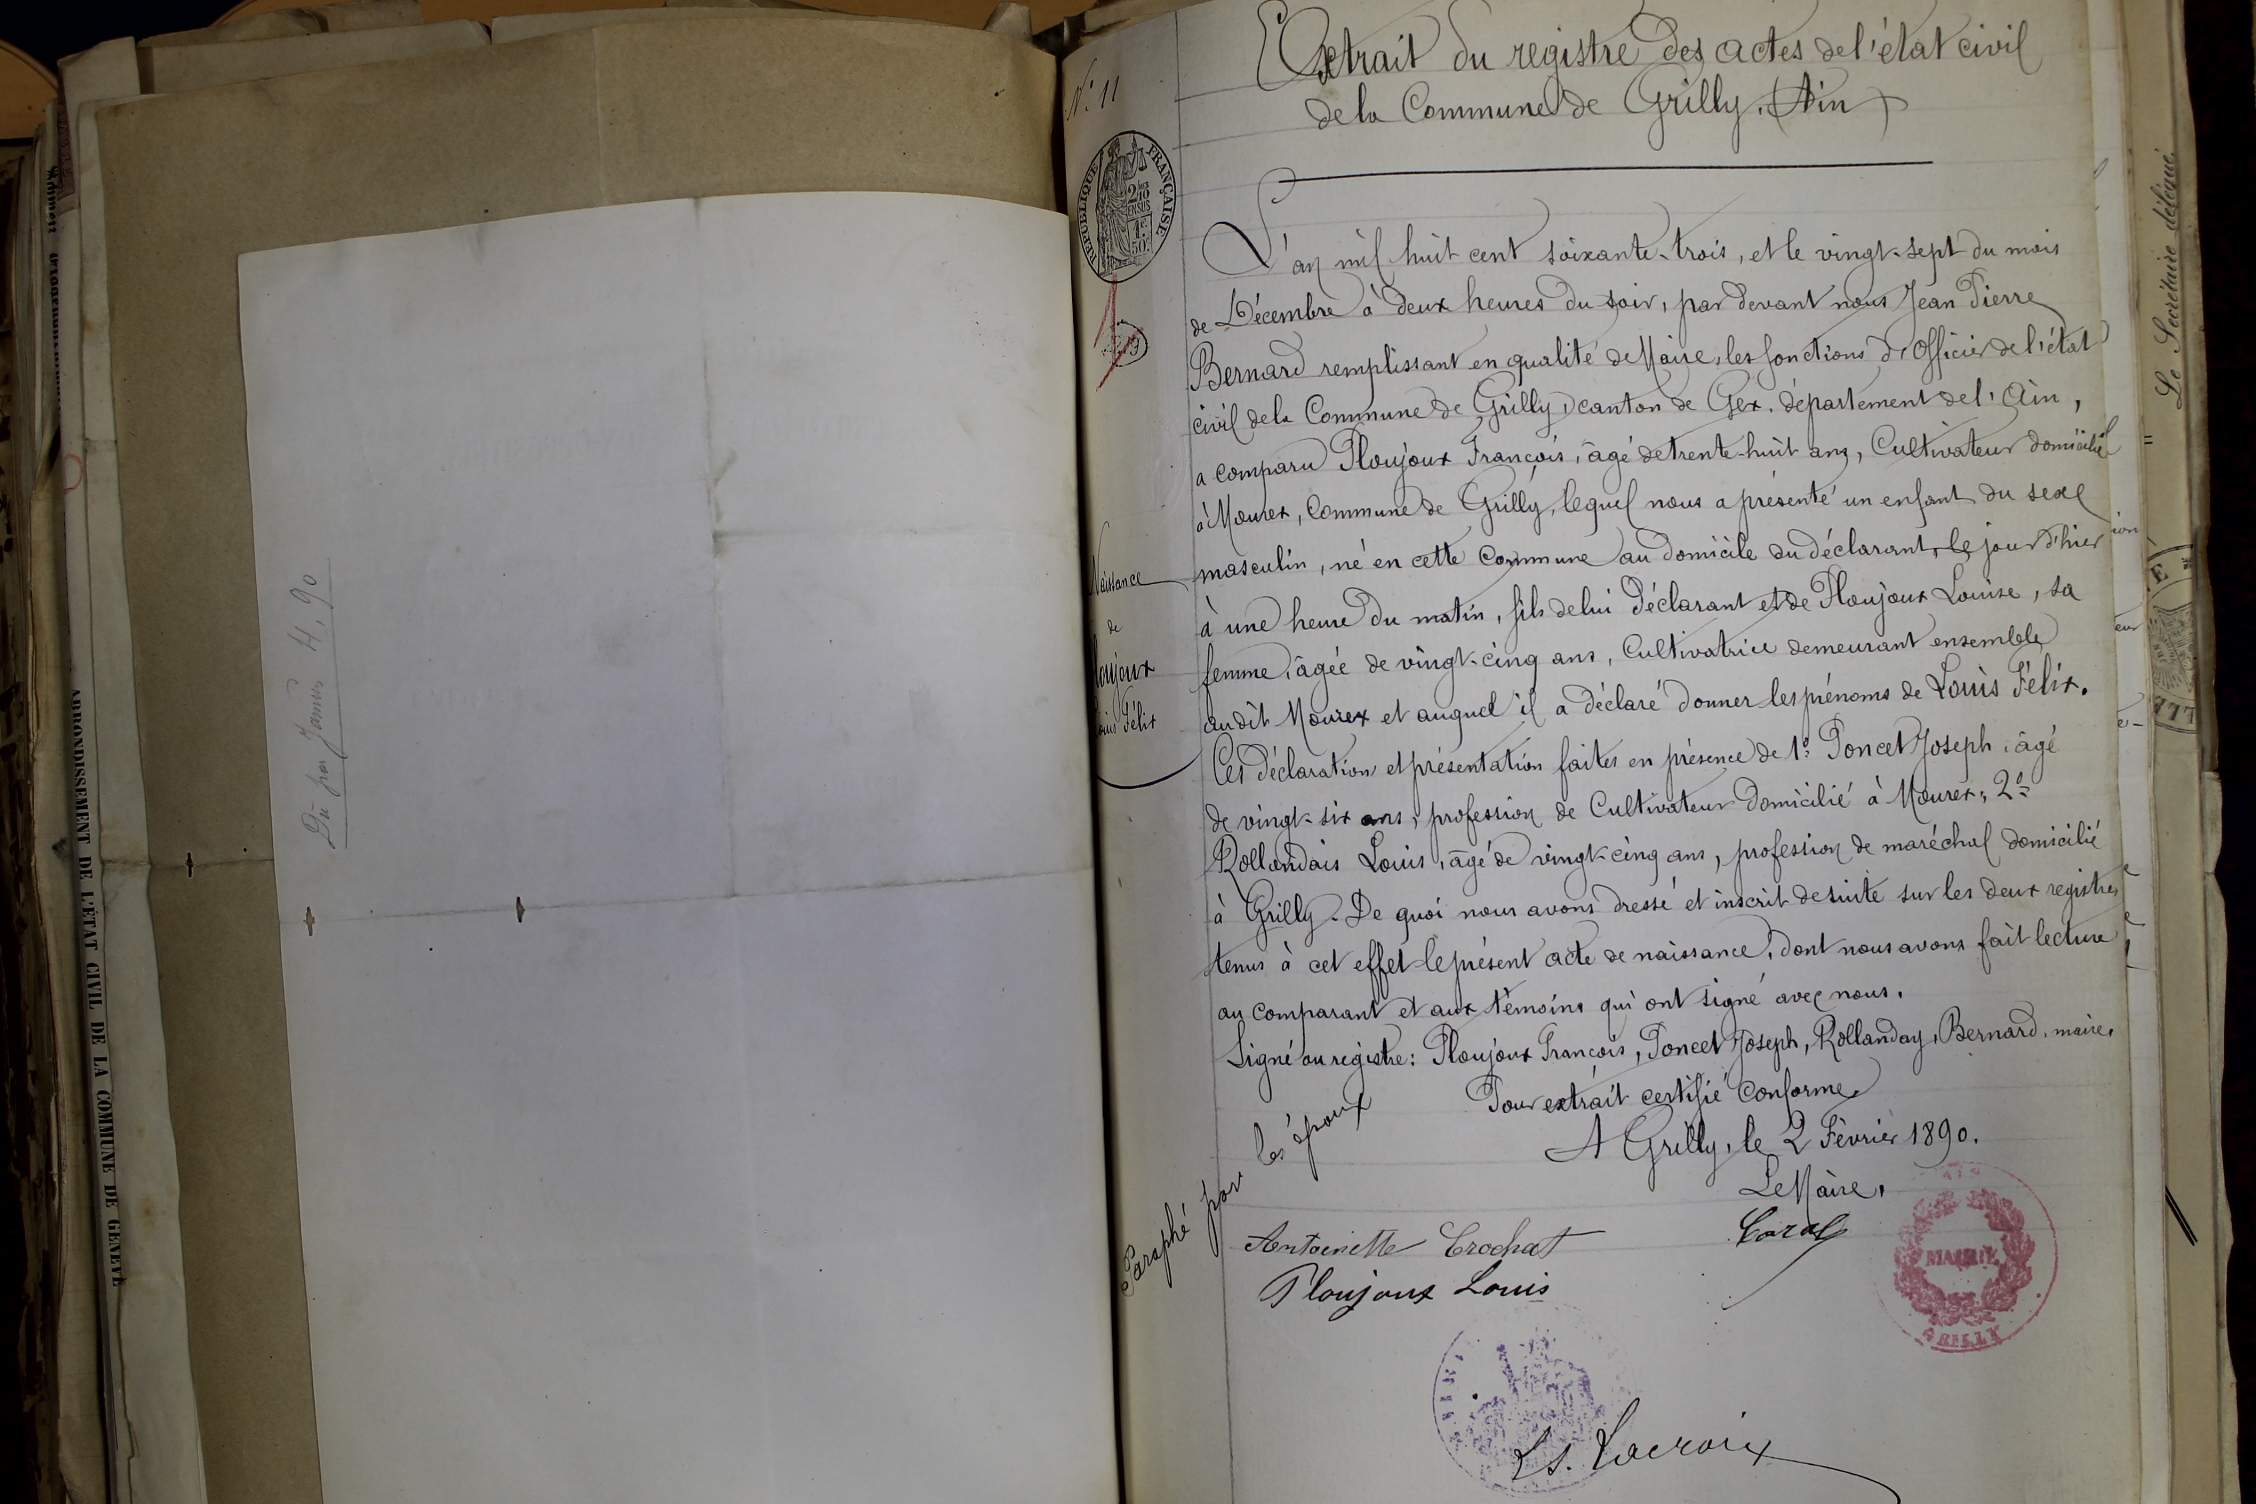 Extrait du registre des actes de l'état civil
de la Commune de Grilly. (Ain)
N° 11
REPUBLIQUE FRANÇAISE
2/10
EN SUS
1F
50c
L'an mil huit cent soixante-trois, et le vingt-sept du mois
de Décembre à deux heures du soir, par devant nous Jean Pierre
Bernard remplissant en qualité de Maire, les fonctions d'Officier de l'état
civil de la Commune de Grilly, canton de Gex, département de l'Ain,
a comparu Ploujoux François, âgé de trente-huit ans, Cultivateur domicilié
à Mourex, Commune de Grilly, lequel nous a présenté un enfant du sexe
masculin, né en cette Commune au domicile du déclarant, le jour d'hier
à une heure du matin, fils de lui Déclarant et de Ploujoux Louise, sa
femme, âgée de vingt-cinq ans, Cultivatrice demeurant ensemble
audit Mourex et auquel il a déclaré donner les prénoms de Louis Félix.
Ces déclaration et présentation faites en présence de 1° Poncet Joseph, âgé
de vingt-six ans, profession de Cultivateur domicilié à Mourex, 2°
Rollandais Louis, âgé de vingt-cinq ans, profession de maréchal domicilié
à Grilly. De quoi nous avons dressé et inscrit de suite sur les deux registres
tenus à cet effet le présent acte de naissance, dont nous avons fait lecture
au comparant et aux témoins qui ont signé avec nous.
Signé au registre: Ploujoux François, Poncet Joseph, Rollanday, Bernard, maire.
Pour extrait certifié Conforme
A Grilly, le 2 Février 1890.
Le Maire,
Naissance
de
Ploujoux
Louis Félix
Paraphé par les époux
Antoinette Crochat
Ploujoux Louis
MAIRIE
GRILLY
Ls. Lacroix
Du 4, 90
ARRONDISSEMENT DE L'ÉTAT CIVIL DE LA COMMUNE DE GENÈVE
Le Secrétaire délégué.